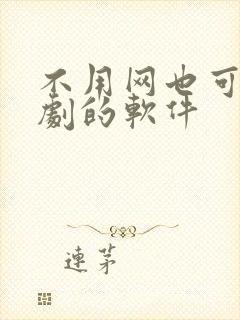 不用网也可
劇的軟件
連茅